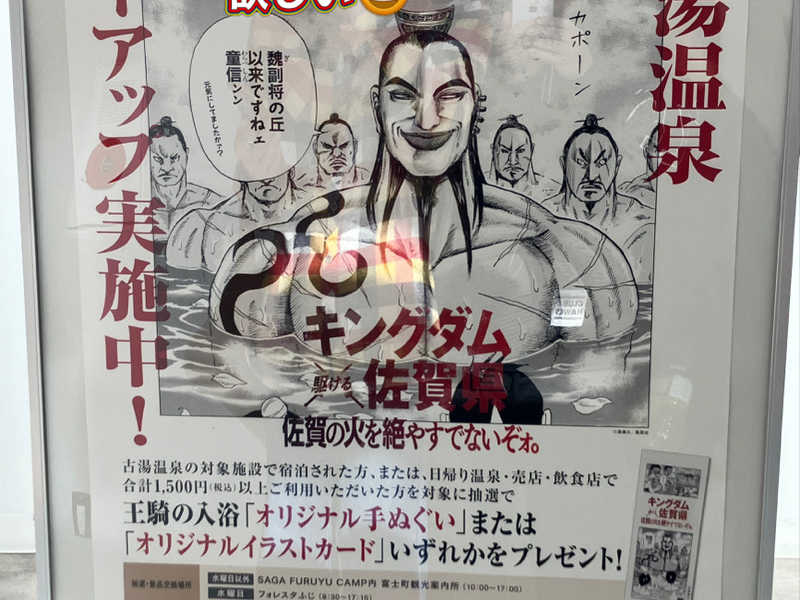 欲しい
湯温泉
アップ実施中!
カポーン
魏副将の丘
以来ですねェ
童信ンン
元気にしてましたか?
キングダム
駆ける
佐賀県
佐賀の火を絶やすでないぞォ。
古湯温泉の対象施設で宿泊された方、または、日帰り温泉・売店・飲食店で
合計1,500円(税込)以上ご利用いただいた方を対象に抽選で
王騎の入浴「オリジナル手ぬぐい」または
「オリジナルイラストカード」いずれかをプレゼント!
キングダム
佐賀県
抽選・景品交換場所
水曜日以外 SAGA FURUYU CAMP内 富士町観光案内所(10:00~17:00)
水曜日 フォレスタふじ(8:30~17:15)